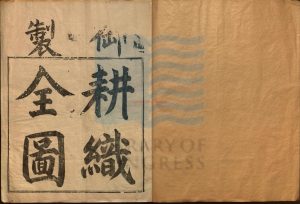 御製
耕織
全圖
LIBRARY OF
CONGRESS